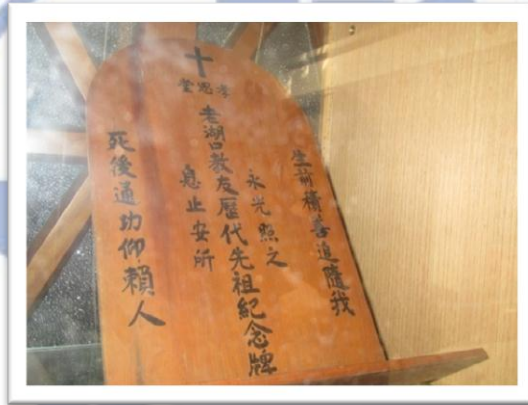 孝思堂
生前積善追隨我
永光照之
老湖口教友歷代先祖紀念牌
息止安所
死後通功仰賴人